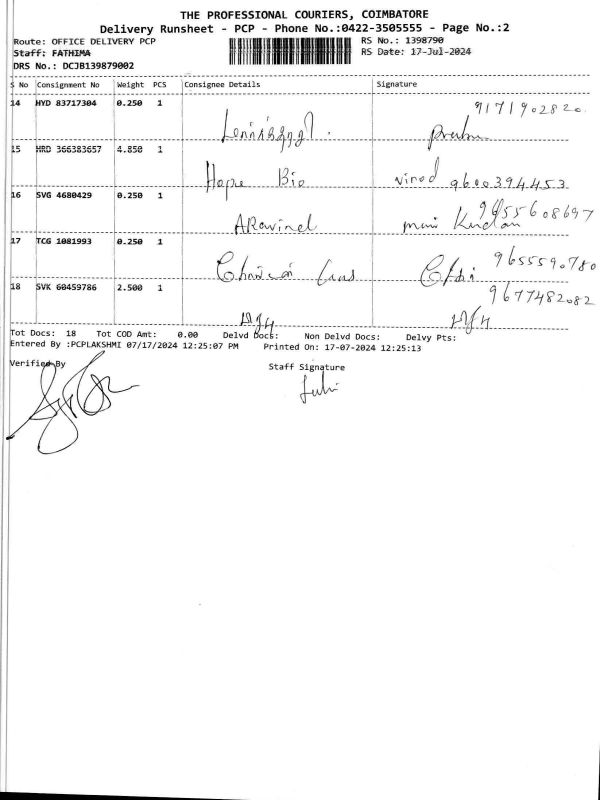 THE PROFESSIONAL COURIERS, COIMBATORE
Delivery Runsheet - PCP - Phone No.:0422-3505555 - Page No.:2
Route: OFFICE DELIVERY PCP
RS No.: 1398790
Staff: FATHIMA
RS Date: 17-Jul-2024
DRS No.: DCJB139879002
S No Consignment No Weight PCS Consignee Details Signature
14 HYD 83717304 0.250 1
9171902820
15 HRD 366383657 4.850 1
Hope Bio
9600394453
16 SVG 4680429 0.250 1
9655608697
ARavind
17 TCG 1081993 0.250 1
9655590780
18 SVK 60459786 2.500 1
9677482082
Tot Docs: 18 Tot COD Amt: 0.00 Delvd Docs: Non Delvd Docs: Delvy Pts:
Entered By :PCPLAKSHMI 07/17/2024 12:25:07 PM Printed On: 17-07-2024 12:25:13
Verified By
Staff Signature